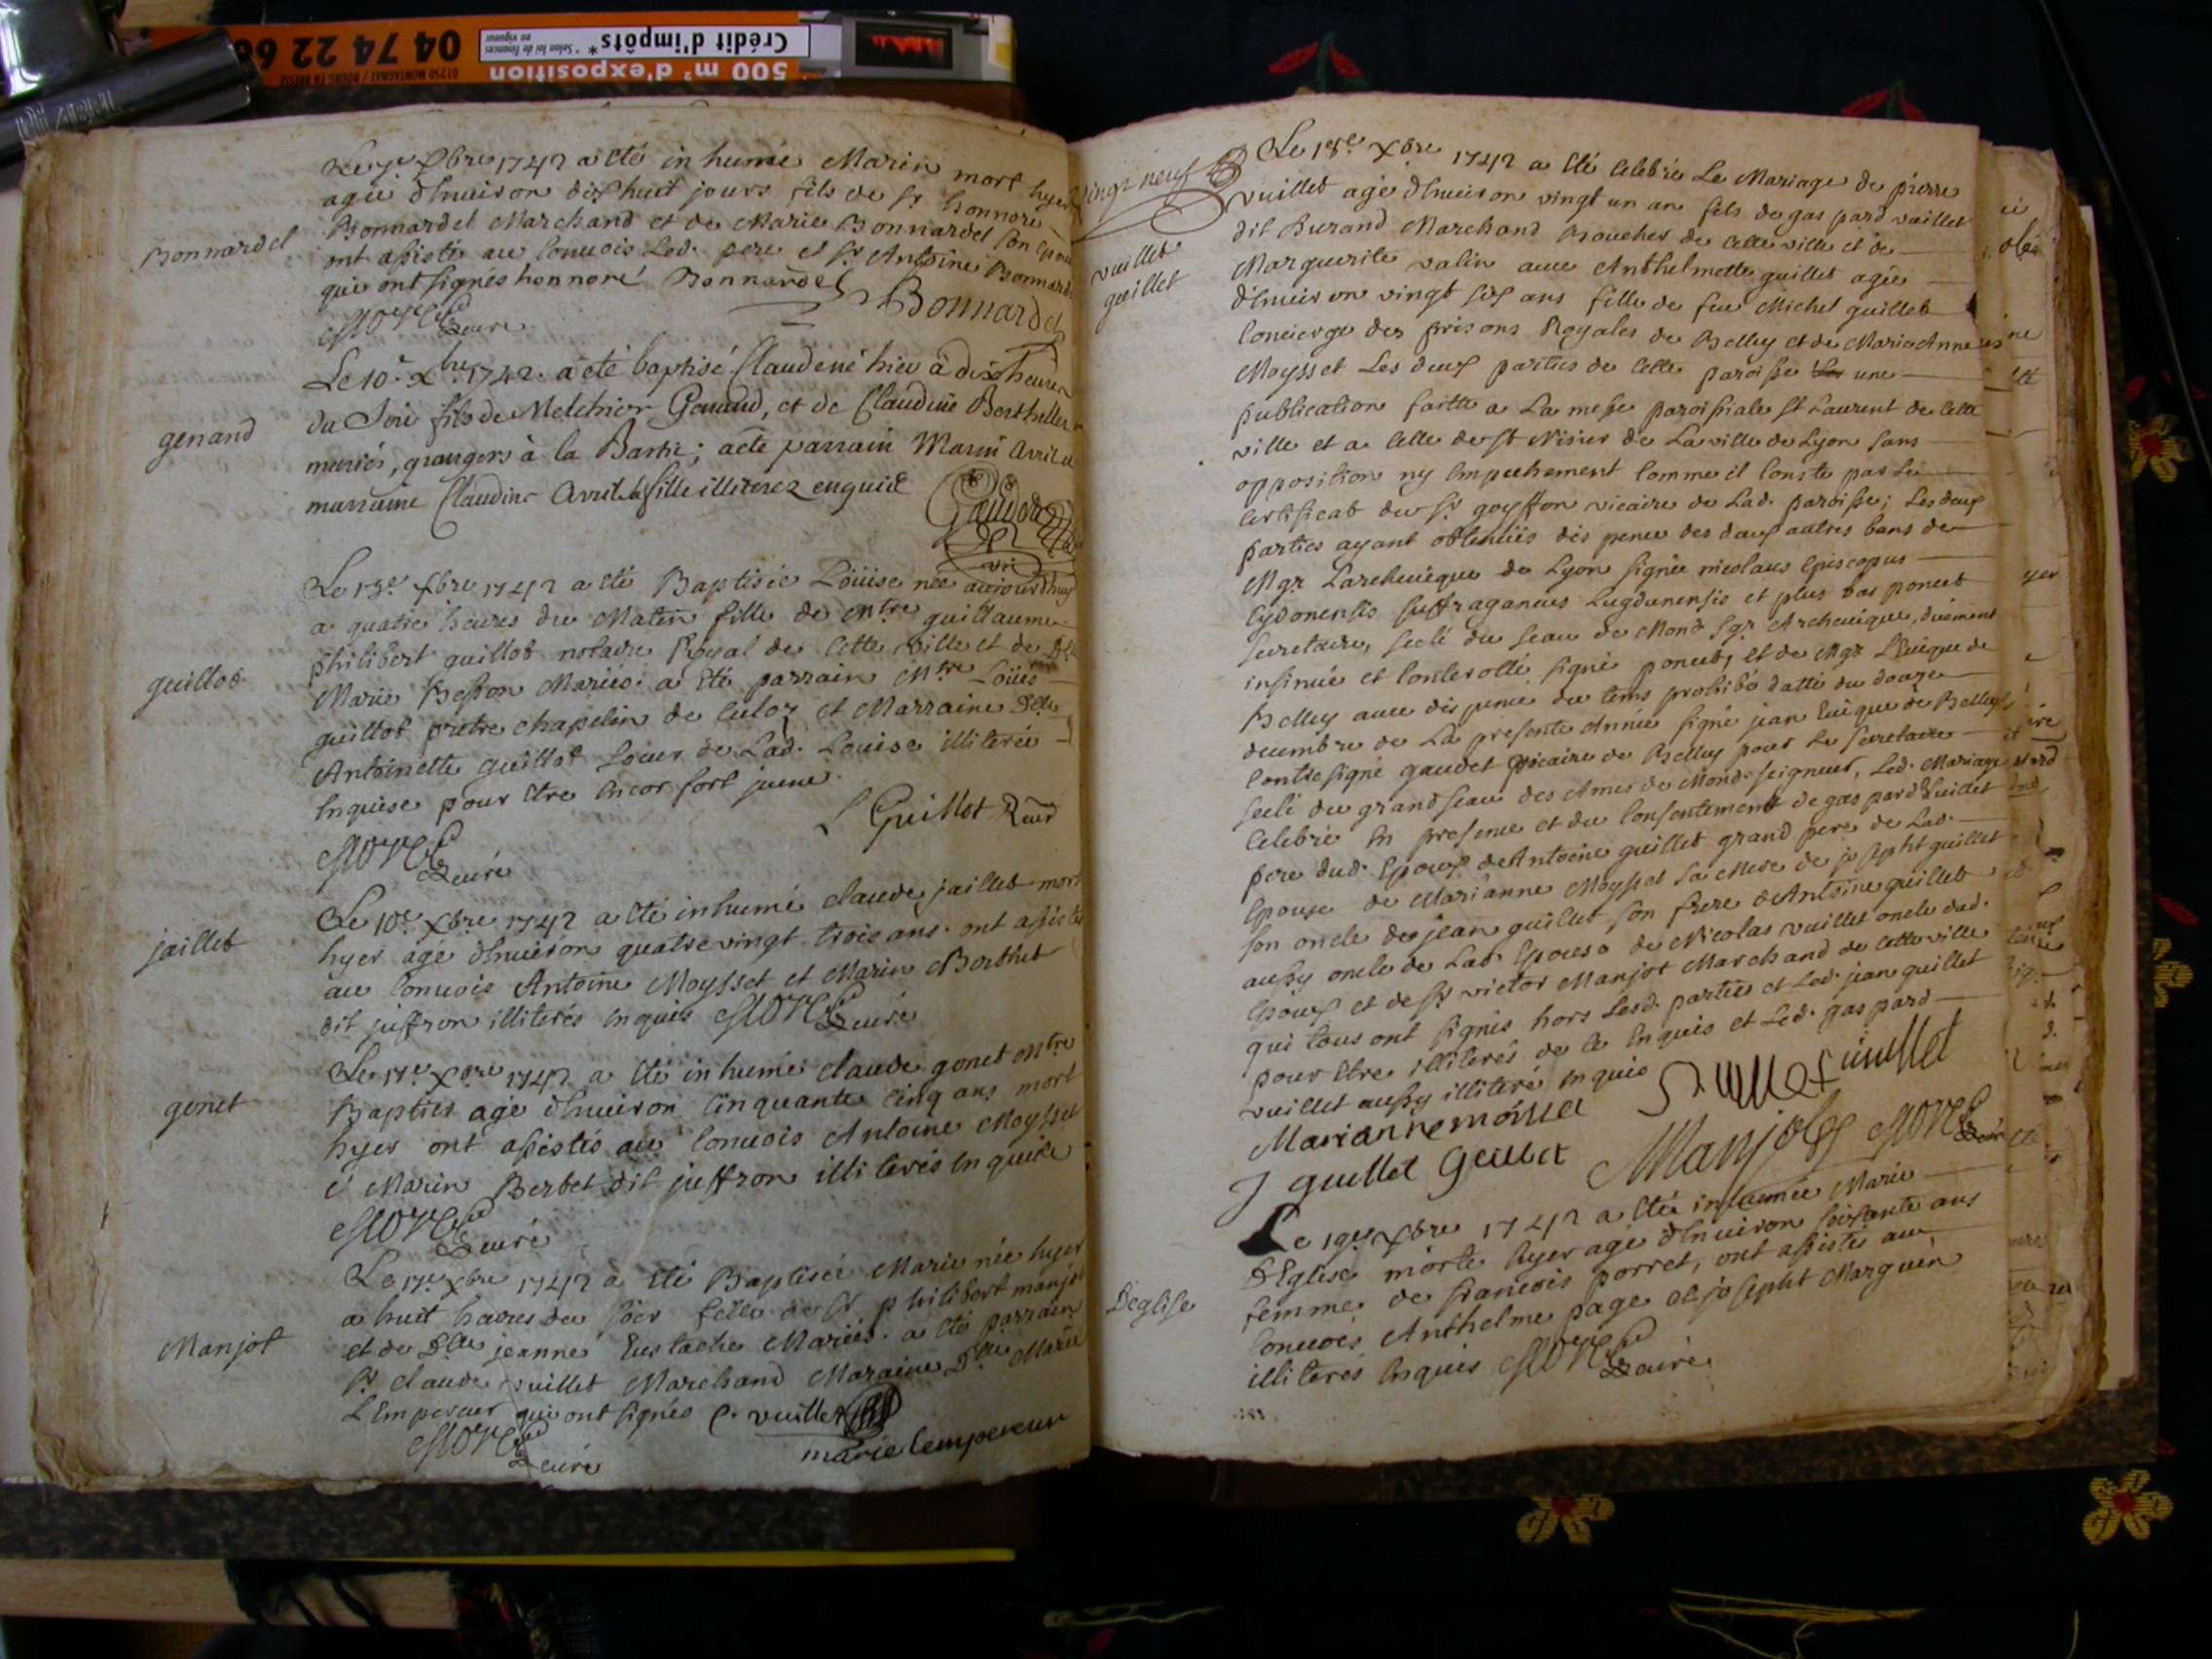 04 74 22 66
01250 MONTAGNAT / BOURG EN BRESSE
Crédit d'impôts*
* Selon loi de finances
en vigueur
500 m² d'exposition
Le 7e Xbre 1742 a eté inhumé Marin mort hyer
agé d'enuiron dix huit jours fils de Sr honnoré
Bonnardel Marchand et de Marie Bonnardel son epouse
Bonnardel
ont assisté au conuois led. pere et Sr Antoine Bonnardel
qui ont signés honnoré Bonnardel
Bonnardel
curé
Le 10e Xbre 1742. a eté baptisé Claude né hier à dix heures
du soir fils de Melchior Genand, et de Claudine Berthelier
genand
mariés, grangers à la Barre; a eté parrain Marin Avril et
marraine Claudine Avril sa fille illiterez enquis
Le 13e Xbre 1742 a eté Baptisée Loüise née aujourd'huy
a quatre heures du Matin fille de Mtre guillaume
philibert guillot notaire Royal de cette ville et de Dlle
guillot
Marie Besson Mariés. a eté parrain Mtre Loüis
guillot pretre chapelin de culoz et Marraine Dlle
Antoinette guillot soeur de Lad. Louise illiterée
enquise pour etre encor fort jeune.
L Guillot
curé
Le 10e Xbre 1742 a eté inhumé claude jaillet mort
jaillet
hyer agé d'enuiron quatre vingt trois ans. ont assistés
au conuois Antoine Moysset et Marin Berthet
dit juffron illiterés enquis curé
Le 17e Xbre 1742 a eté inhumé claude gonet Mtre
gonet
Baptier agé d'enuiron cinquante cinq ans mort
hyer ont assistés au conuois Antoine Moysset
et Marin Berbet dit juffron illiterés enquis
curé
Le 17e Xbre 1742 a eté Baptisée Marie née hyer
a huit heures du soir fille de Sr philibert manjot
Manjot
et de Dlle jeanne Eustache Mariés. a eté parrain
Sr claude vuillet Marchand Maraine Dlle Marie
L'Empereur qui ont signés C. vuillet
curé
marie lempereur
vingt neuf
Le 18e Xbre 1742 a eté celebré Le Mariage de pierre
vuillet agé d'enuiron vingt un an fils de gaspard vuillet
vuillet
guillet
dit Durand Marchand Boucher de cette ville et de
Marguerite valin auec Anthelmette guillet agée
d'enuiron vingt six ans fille de feu Michel guillet
concierge des prisons Royales de Belley et de Marie Anne
Moysset Les deux parties de cette paroisse une
publication faitte a La messe paroissiale St Laurent de cette
ville et a celle de St Nisier de La ville de Lyon sans
opposition ny empechement comme il conste par le
certificat du Sr goyffon vicaire de Lad. paroisse; Les deux
parties ayant obtenües dispence des deux autres bans de
Mgr Larcheuêque de Lyon signée nicolaus Episcopus
Cydonensis suffraganeus Lugdunensis et plus bas poncet
secretaire, scelé du sceau de Mond. Sgr Archeuêque, düement
insinué et conterollé signé poncet, et de Mgr L'Euêque de
Belley auec dispence du tems prohibé datté du douze
decembre de La presente Année signé jean Euêque de Belley
contresigné gaudet vicaire de Belley pour Le secretaire
scelé du grand sceau des Armes de Mond. seigneur, Led. Mariage
celebré en presence et du consentement de gaspard vuillet
pere dud. Epoux de Antoine guillet grand pere de Lad.
Epouse de Marianne Moysset sa Mere de josepht guillet
son oncle de jean guillet son frere de Antoine guillet
aussy oncle de Lad. Epouse de Nicolas vuillet oncle dud.
Epoux et de Sr victor Manjot Marchand de cette ville
qui tous ont signés hors Lesd. parties et Led. jean guillet
pour etre illiterés de ce enquis et Led. gaspard
vuillet aussy illiteré enquis
Marianne
J guillet Guillet Manjot
Le 19e Xbre 1742 a eté inhumée Marie
D'Eglise morte hyer agé d'enuiron soixante ans
Deglise
femme de francois porret, ont assistés au
conuois Anthelme page et josepht Marguin
illiterés enquis curé